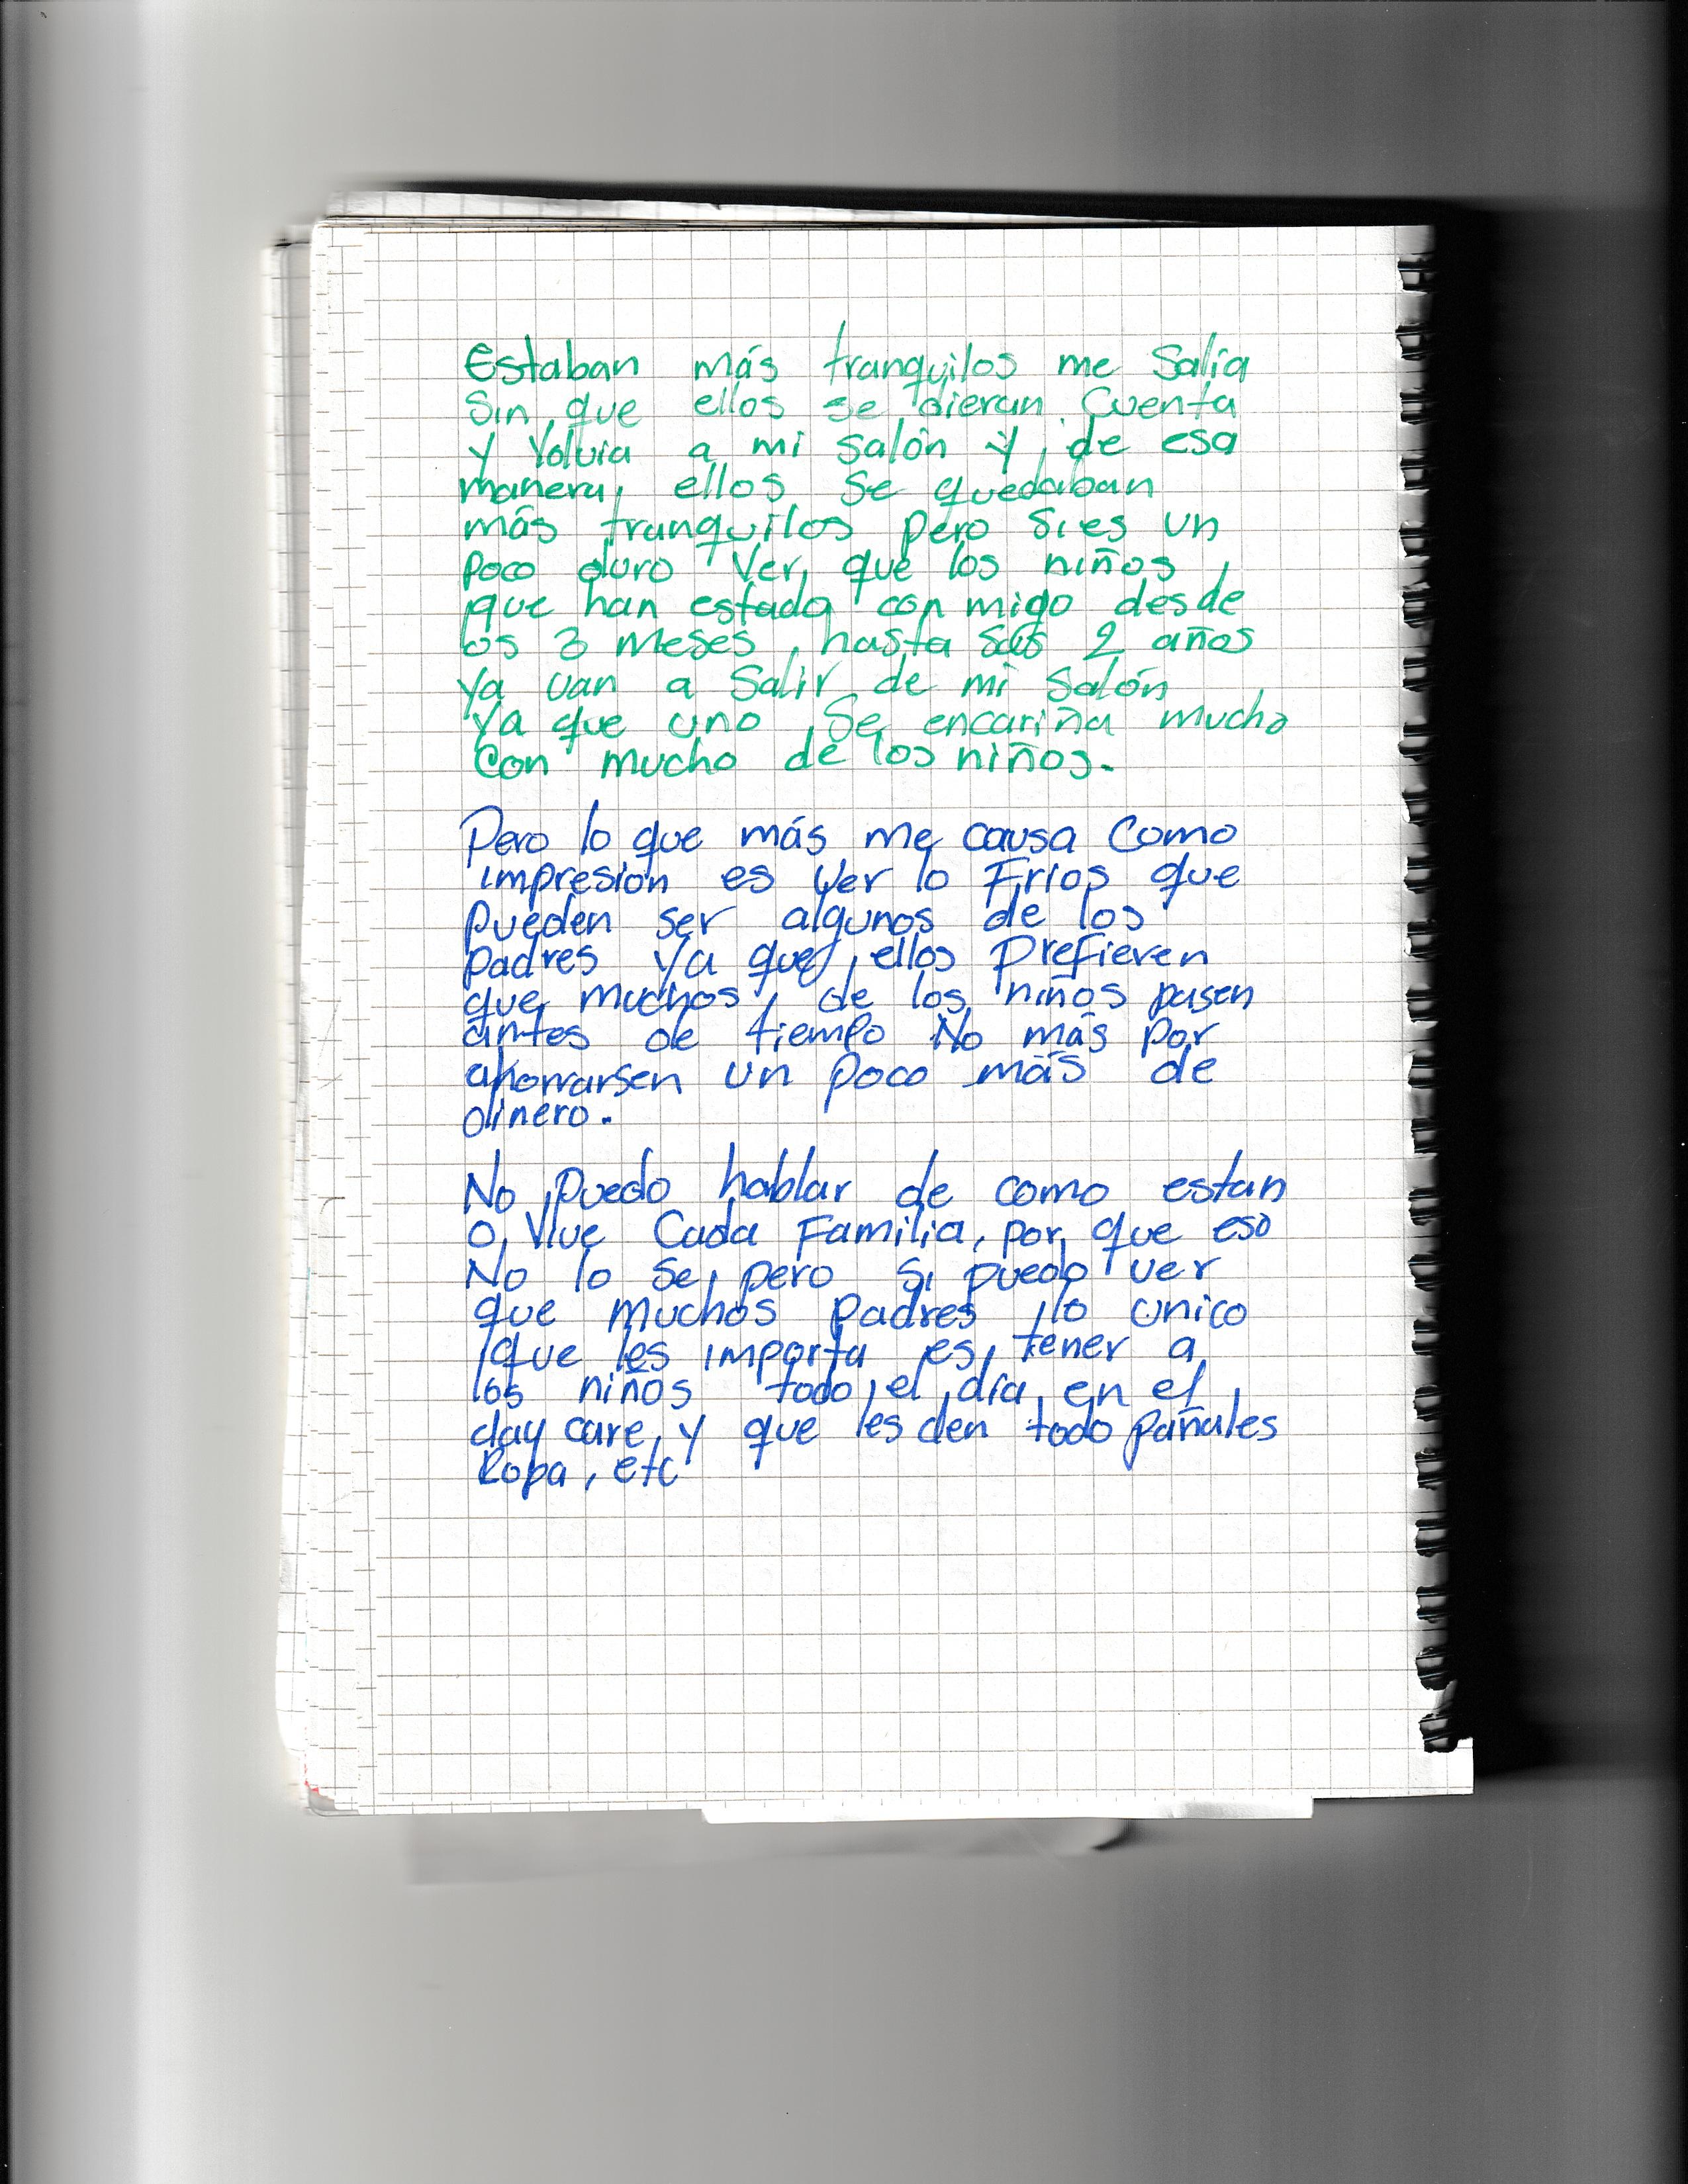 Estaban más tranquilos me Salia
Sin que ellos se dieran Cuenta
y Volvia a mi salón y de esa
manera ellos Se quedaban
más tranquilos pero Si es un
poco duro Ver que los niños
que han estado con migo desde
los 3 Meses hasta sus 2 años
Ya van a Salir de mi Salón
Ya que uno Se encariña mucho
Con mucho de los niños.
Pero lo que más me causa Como
impresión es Ver lo Frios que
Pueden ser algunos de los
padres Ya que ellos Prefieren
que muchos de los niños pasen
antes de tiempo No más por
ahorrarsen un poco más de
dinero.
No puedo hablar de como estan
o Vive Cada Familia, por que eso
No lo Se pero Si puedo ver
que muchos padres lo unico
que les importa es tener a
los niños todo el día en el
day care, y que les den todo pañales
Ropa, etc